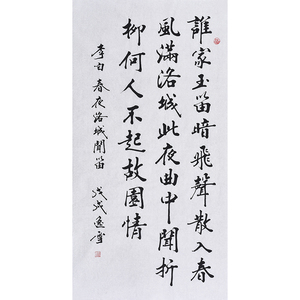 誰家玉笛暗飛聲散入春
風滿洛城此夜曲中聞折
柳何人不起故園情
李白春夜洛城聞笛
戊戌逸雪